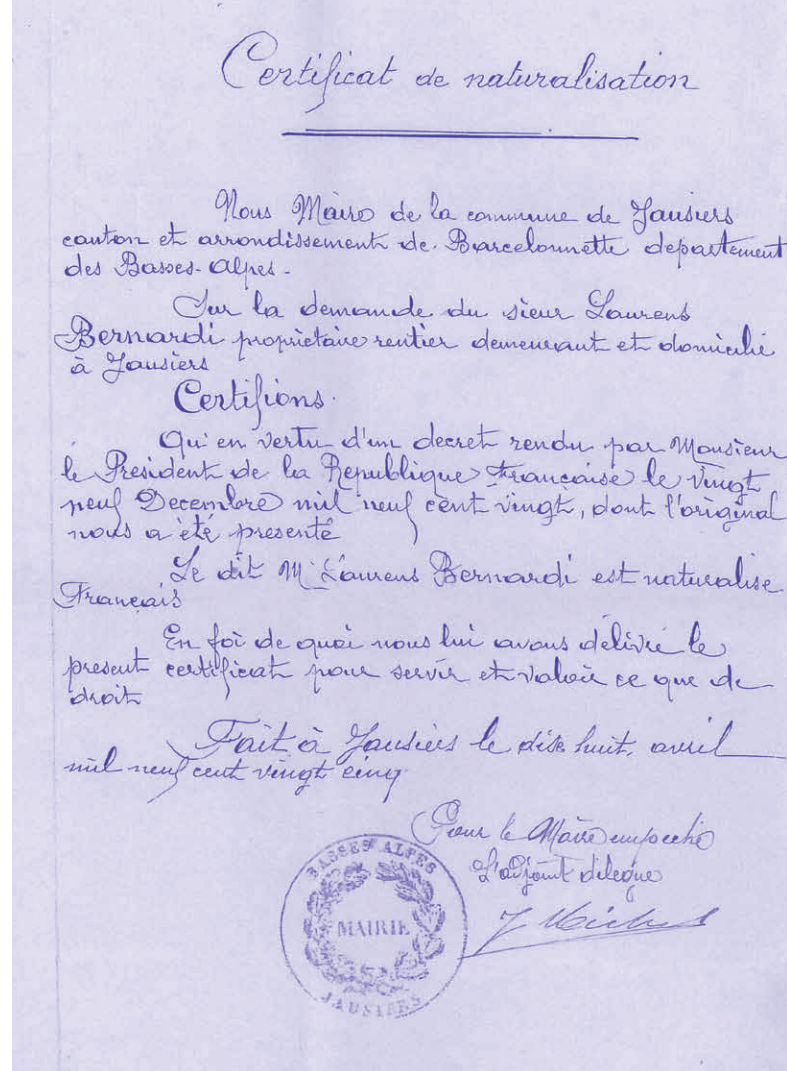 Certificat de naturalisation
Nous Maire de la commune de Jausiers
canton et arrondissement de Barcelonnette departement
des Basses-Alpes.
Sur la demande du sieur Laurens
Bernardi proprietaire rentier demeurant et domicilié
à Jausiers
Certifions.
Qu'en vertu d'un decret rendu par Monsieur
le President de la Republique Française le vingt
neuf Decembre mil neuf cent vingt, dont l'original
nous a été presenté
Le dit M. Laurens Bernardi est naturalise
Français
En foi de quoi nous lui avons délivré le
present certificat pour servir et valoir ce que de
droit
Fait à Jausiers le dix huit avril
mil neuf cent vingt cinq
Pour le Maire empeché
L'adjoint délegue
J Michel
BASSES ALPES
MAIRIE
JAUSIERS